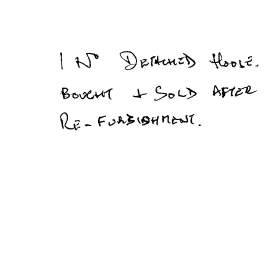 1 No DETACHED HOUSE.
BOUGHT + SOLD AFTER
RE-FURBISHMENT.